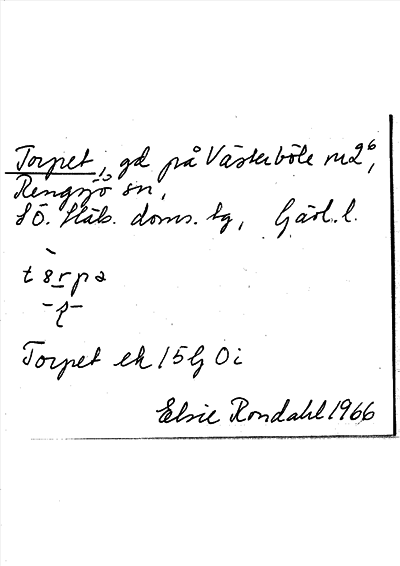 Torpet, gd på Västerböle m2⁶,
Rengsjö sn,
SÖ. Häls. doms. tg, Gävl. l.
tɵrpa
Torpet ek 15G Oi
Elsie Rondahl 1966